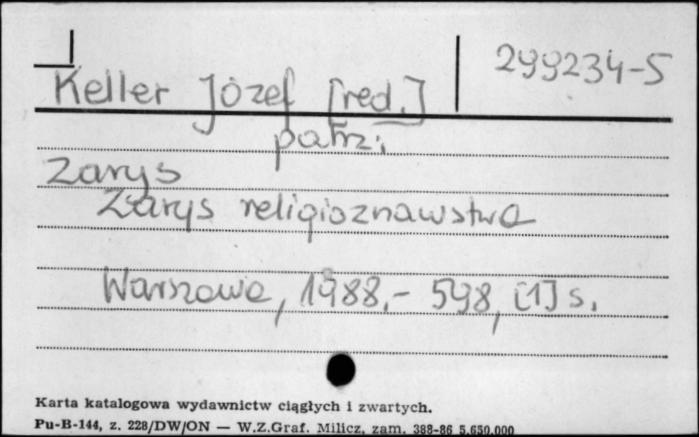 299234-S
Keller Józef [red.]
patrz:
Zarys
Zarys religioznawstwa
Warszawa, 1988.- 598, [1] s.
Karta katalogowa wydawnictw ciągłych i zwartych.
Pu-B-144, z. 228/DW/ON — W.Z.Graf. Milicz, zam. 388-86 5.650.000